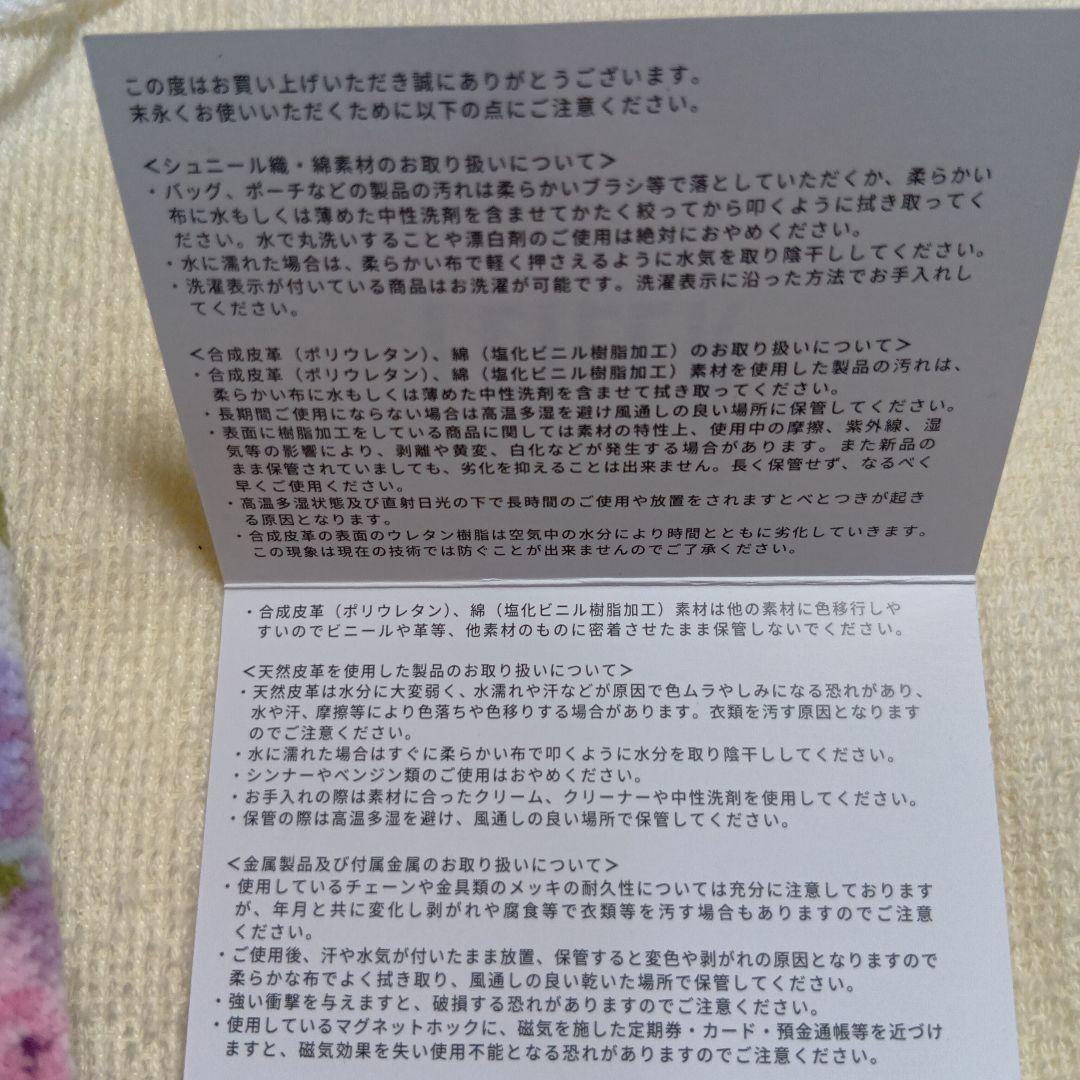 この度はお買い上げいただき誠にありがとうございます。
末永くお使いいただくために以下の点にご注意ください。
＜シュニール織・綿素材のお取り扱いについて＞
・バッグ、ポーチなどの製品の汚れは柔らかいブラシ等で落としていただくか、柔らかい
布に水もしくは薄めた中性洗剤を含ませてかたく絞ってから叩くように拭き取ってく
ださい。水で丸洗いすることや漂白剤のご使用は絶対におやめください。
・水に濡れた場合は、柔らかい布で軽く押さえるように水気を取り陰干ししてください。
・洗濯表示が付いている商品はお洗濯が可能です。洗濯表示に沿った方法でお手入れし
てください。
＜合成皮革（ポリウレタン）、綿（塩化ビニル樹脂加工）のお取り扱いについて＞
・合成皮革（ポリウレタン）、綿（塩化ビニル樹脂加工）素材を使用した製品の汚れは、
柔らかい布に水もしくは薄めた中性洗剤を含ませて拭き取ってください。
・長期間ご使用にならない場合は高温多湿を避け風通しの良い場所に保管してください。
・表面に樹脂加工をしている商品に関しては素材の特性上、使用中の摩擦、紫外線、湿
気等の影響により、剥離や黄変、白化などが発生する場合があります。また新品の
まま保管されていましても、劣化を抑えることは出来ません。長く保管せず、なるべく
早くご使用ください。
・高温多湿状態及び直射日光の下で長時間のご使用や放置をされますとべとつきが起き
る原因となります。
・合成皮革の表面のウレタン樹脂は空気中の水分により時間とともに劣化していきます。
この現象は現在の技術では防ぐことが出来ませんのでご了承ください。
・合成皮革（ポリウレタン）、綿（塩化ビニル樹脂加工）素材は他の素材に色移行しや
すいのでビニールや革等、他素材のものに密着させたまま保管しないでください。
＜天然皮革を使用した製品のお取り扱いについて＞
・天然皮革は水分に大変弱く、水濡れや汗などが原因で色ムラやしみになる恐れがあり、
水や汗、摩擦等により色落ちや色移りする場合があります。衣類を汚す原因となります
のでご注意ください。
・水に濡れた場合はすぐに柔らかい布で叩くように水分を取り陰干ししてください。
・シンナーやベンジン類のご使用はおやめください。
・お手入れの際は素材に合ったクリーム、クリーナーや中性洗剤を使用してください。
・保管の際は高温多湿を避け、風通しの良い場所で保管してください。
＜金属製品及び付属金属のお取り扱いについて＞
・使用しているチェーンや金具類のメッキの耐久性については充分に注意しております
が、年月と共に変化し剥がれや腐食等で衣類等を汚す場合もありますのでご注意
ください。
・ご使用後、汗や水気が付いたまま放置、保管すると変色や剥がれの原因となりますので
柔らかな布でよく拭き取り、風通しの良い乾いた場所で保管してください。
・強い衝撃を与えますと、破損する恐れがありますのでご注意ください。
・使用しているマグネットホックに、磁気を施した定期券・カード・預金通帳等を近づけ
ますと、磁気効果を失い使用不能となる恐れがありますのでご注意ください。